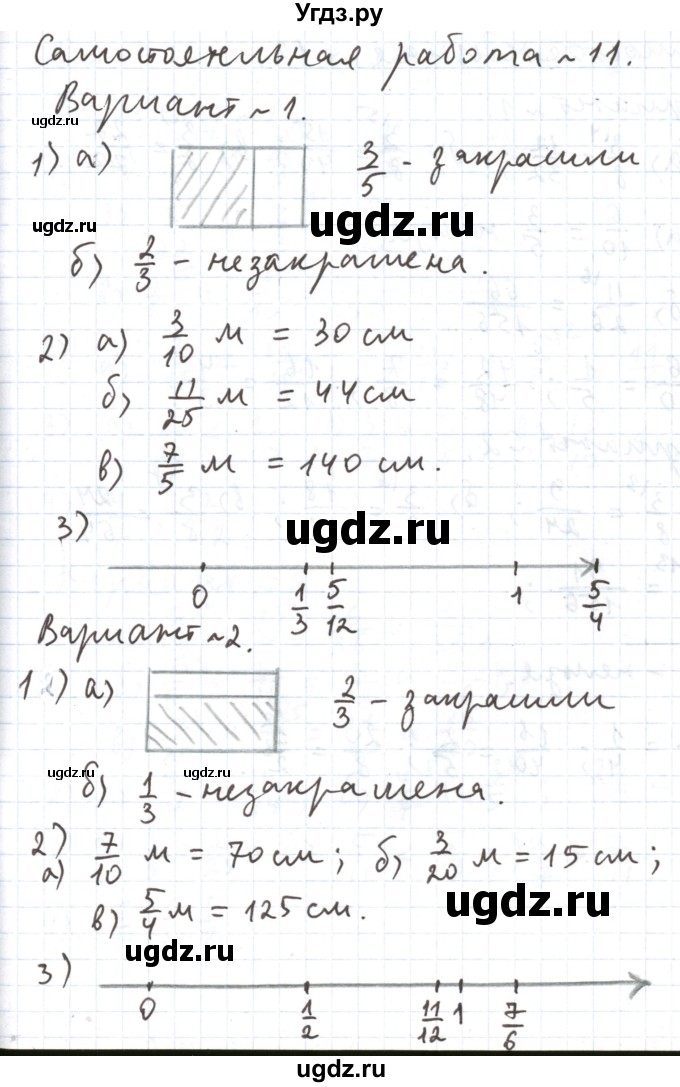 Угдз.ру
Самостоятельная работа ~ 11.
Вариант ~ 1.
ugdz.ru
1) а) 3/5 - закрасили
ugdz.ru
ugdz.ru
б) 2/3 - незакрашена.
2) а) 3/10 м = 30 см
б) 11/25 м = 44 см
в) 7/5 м = 140 см.
3)
ugdz.ru
0 1/3 5/12 1 5/4
Вариант ~ 2.
1) а) 2/3 - закрасили
ugdz.ru
ugdz.ru
б) 1/3 - незакрашена.
2) а) 7/10 м = 70 см; б) 3/20 м = 15 см;
ugdz.ru
в) 5/4 м = 125 см.
ugdz.ru
3)
0 1/2 11/12 1 7/6
ugdz.ru